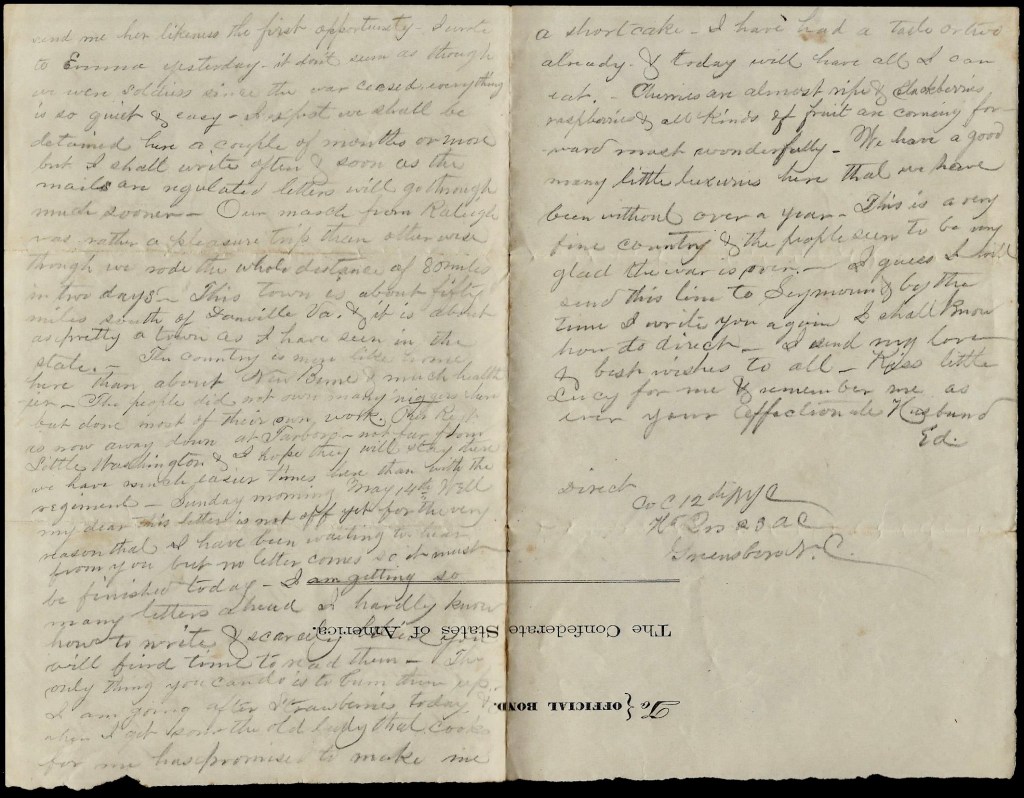 send me her likeness the first opportunity - I wrote
to Emma yesterday - it dont seem as though
we were soldiers since the war ceased, everything
is so quiet & easy - I expect we shall be
detained here a couple of months or more
but I shall write often & soon as the
mails are regulated letters will go through
much sooner - Our march from Raleigh
was rather a pleasure trip than otherwise
though we rode the whole distance of 80 miles
in two days - This town is about fifty
miles south of Danville Va. & it is about
as pretty a town as I have seen in the
state. - The country is more like home
here than about New Berne & much health
ier - The people did not own many niggers here
but done most of their own work. Our Regt
is now away down at Tarboro - not far from
Little Washington & I hope they will stay there
we have much easier times here than with the
regiment - Sunday morning May 14th Well
my dear this letter is not off yet for the very
reason that I have been waiting to hear
from you but no letter comes so it must
be finished today - I am getting so
many letters ahead I hardly know
how to write & scarcely believe you
will find time to read them - The
only thing you can do is to burn them up.
I am going after Strawberries today &
when I get some the old lady that cooks
for me has promised to make me
a shortcake - I have had a taste or two
already - & today will have all I can
eat. - Cherries are almost ripe & blackberries
raspberries & all kinds of fruit are coming for-
ward most wonderfully - We have a good
many little luxuries here that we have
been without over a year - This is a very
fine country & the people seem to be very
glad the war is over. - I guess I will
send this line to Seymour & by the
time I write you again I shall know
how to direct - I send my love
& best wishes to all - Kiss little
Lucy for me & remember me as
ever your affectionate Husband
Ed.
Direct
Co C 12th NYC
H. Qrs 23 AC
Greensboro N.C.
The Confederate States of America.
To } OFFICIAL BOND.